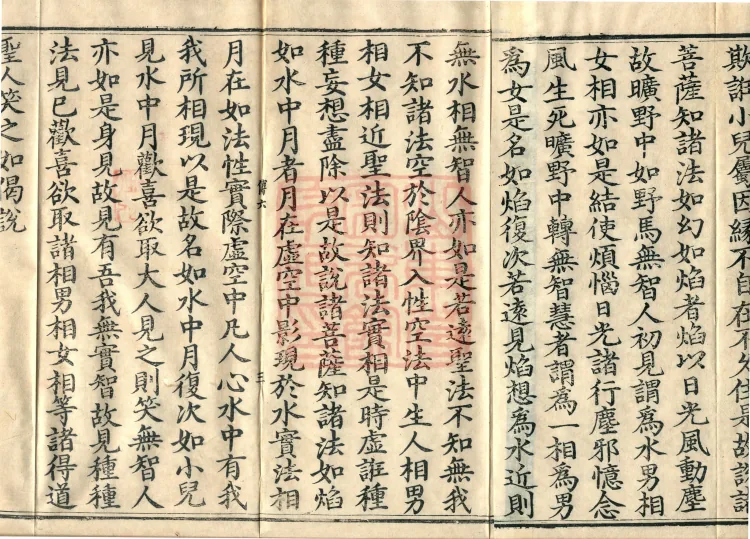 欺誑小兒屬因緣不自在不久住是故說諸
菩薩知諸法如幻如焰者焰以日光風動塵
故曠野中如野馬無智人初見謂爲水男相
女相亦如是結使煩惱日光諸行塵邪憶念
風生死曠野中轉無智慧者謂爲一相爲男
爲女是名如焰復次若遠見焰想爲水近則
無水相無智人亦如是若遠聖法不知無我
不知諸法空於陰界入性空法中生人相男
相女相近聖法則知諸法實相是時虛誑種
種妄想盡除以是故說諸菩薩知諸法如焰
如水中月者月在虛空中影現於水實法相
六 三
月在如法性實際虛空中凡人心水中有我
我所相現以是故名如水中月復次如小兒
見水中月歡喜欲取大人見之則笑無智人
亦如是身見故見有吾我無實智故見種種
法見已歡喜欲取諸相男相女相等諸得道
聖人笑之如偈說